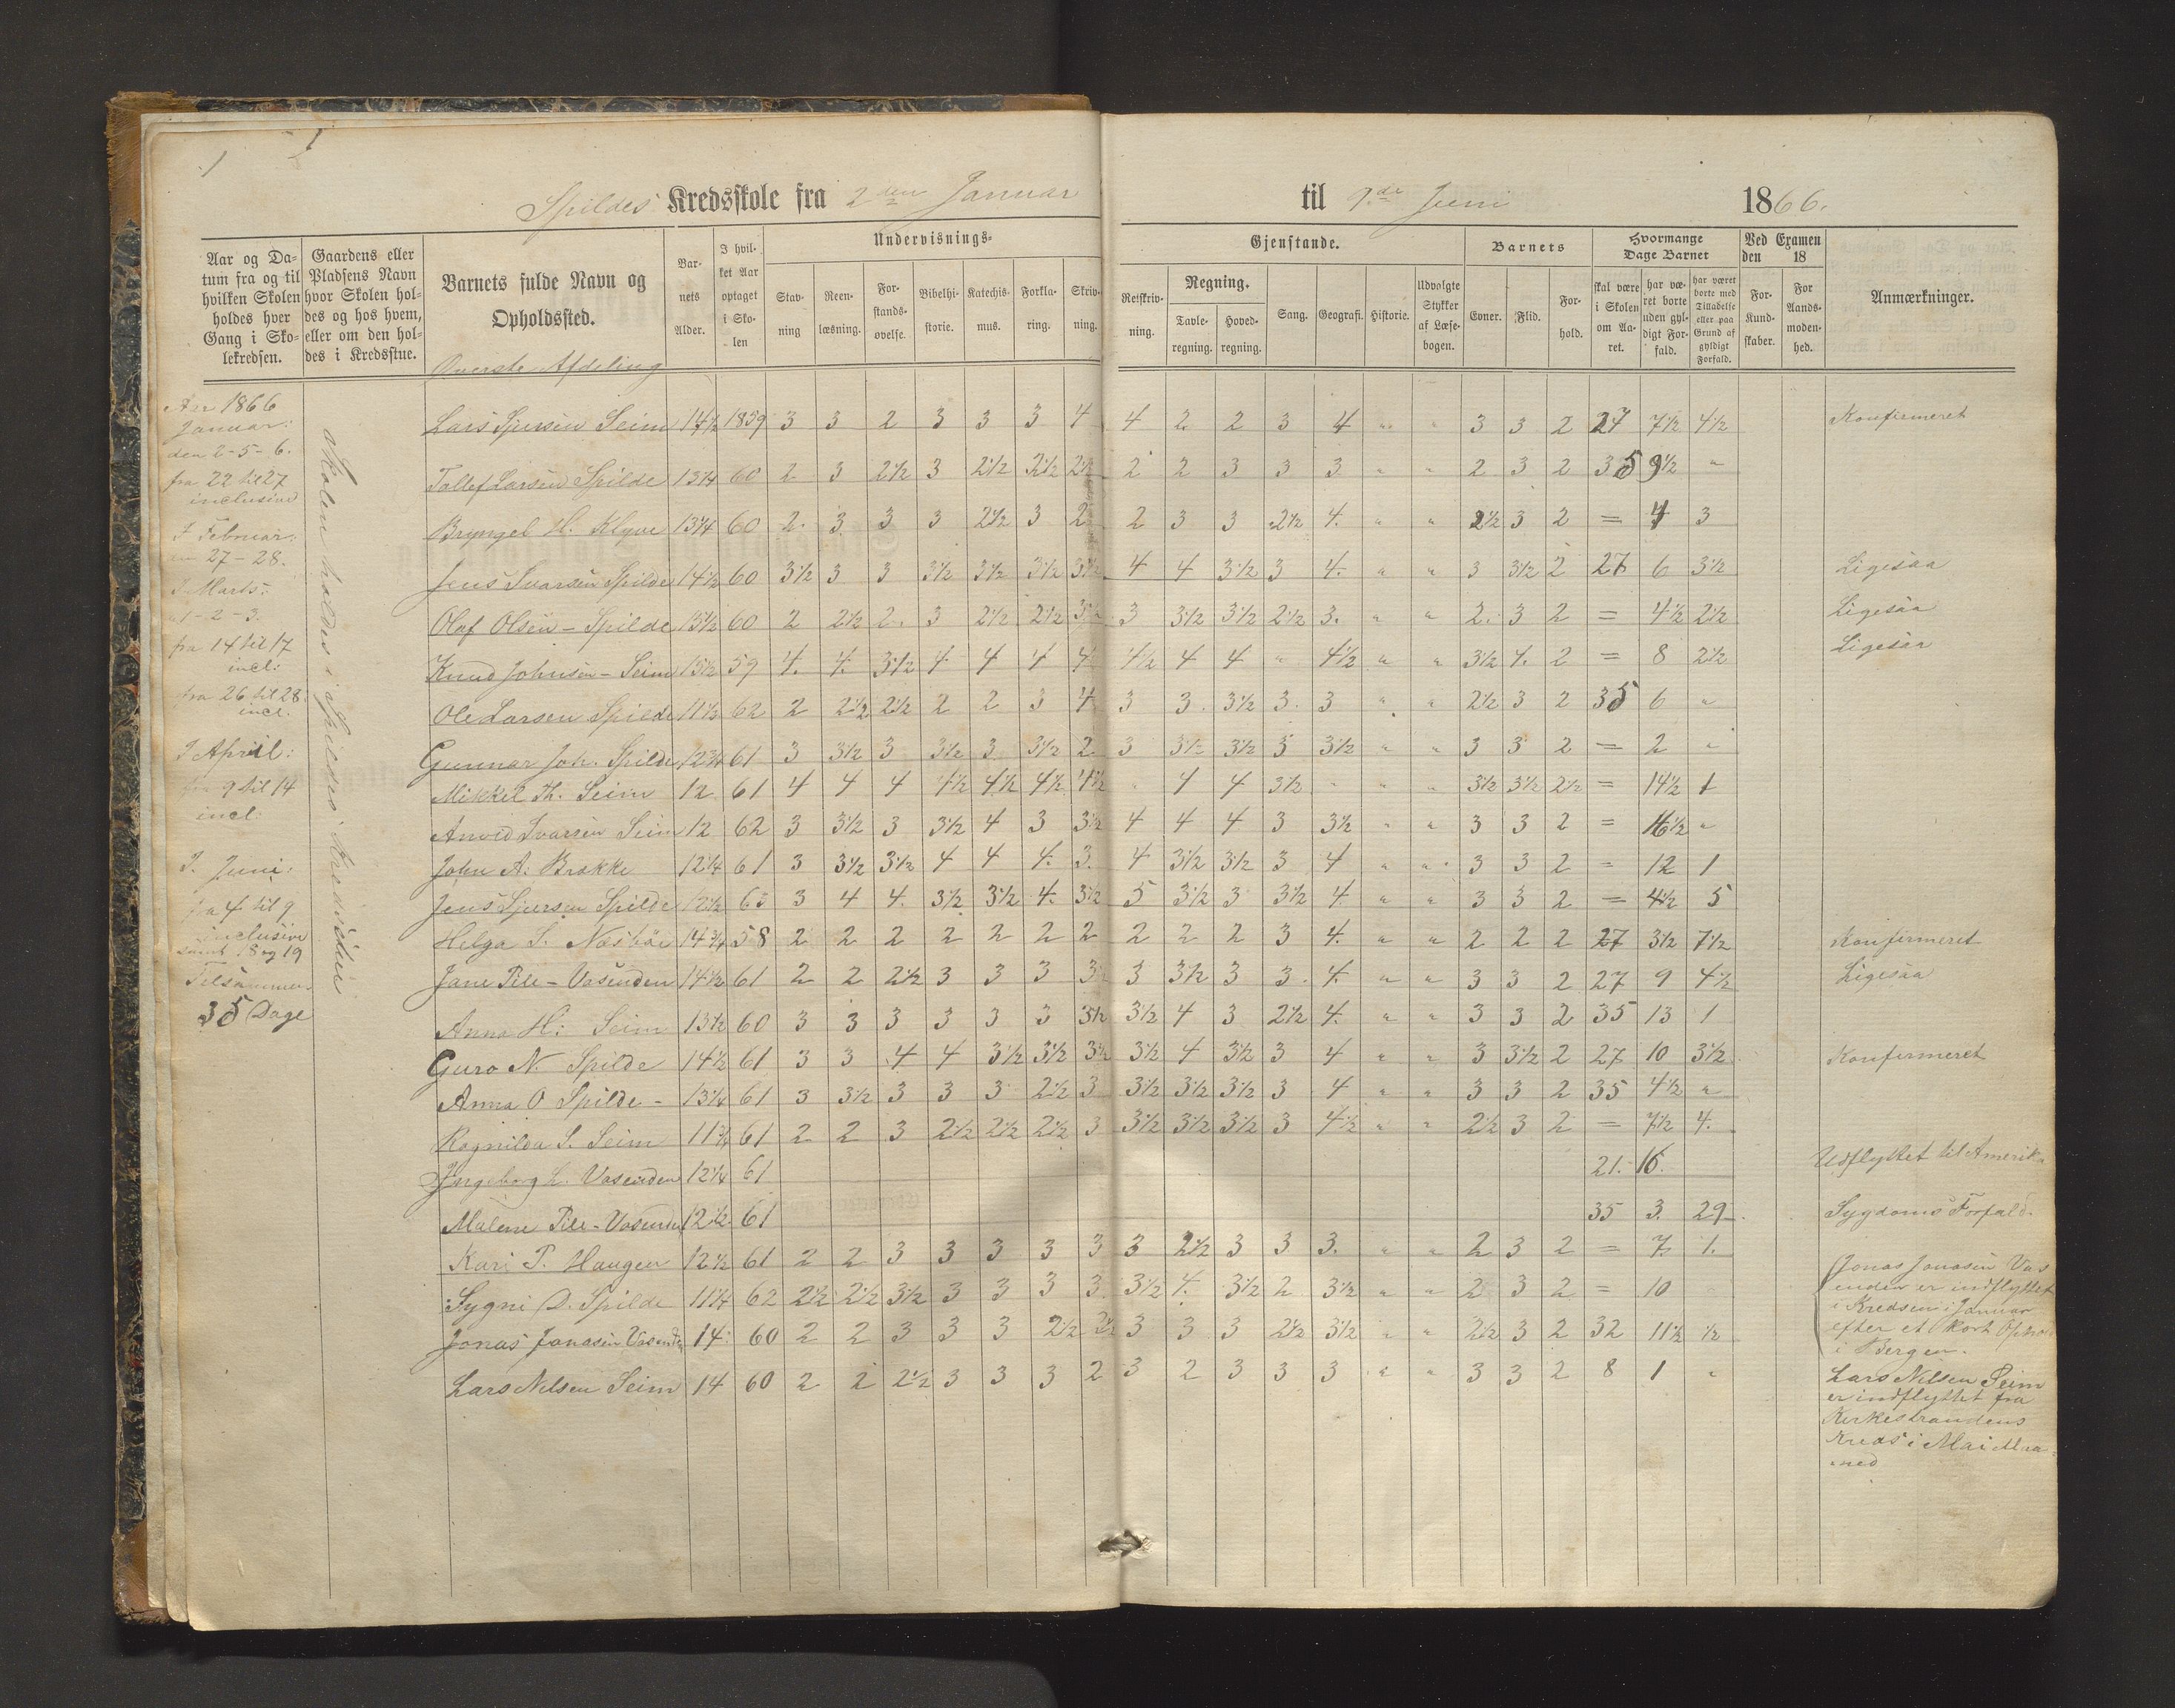 1
Spildes Kredsskole fra 2den Januar til 9de Juni 1866.
Aar og Datum fra og til hvilken Skolen holdes hver Gang i Skolekredsen.
Gaardens eller Pladsens Navn hvor Skolen holdes og hos hvem, eller om den holdes i Kredsstue.
Barnets fulde Navn og Opholdssted.
Barnets Alder.
I hvilket Aar optaget i Skolen
Undervisnings-Gjenstande.
Stavning
Reenlæsning.
Forstandsøvelse.
Bibelhistorie.
Katechismus.
Forklaring.
Skrivning.
Retskrivning.
Regning.
Tavleregning.
Hovedregning.
Sang.
Geografi.
Historie.
Udvalgte Stykker af Læsebogen.
Barnets
Evner.
Flid.
Forhold.
Hvormange Dage Barnet
skal være i Skolen om Aaret.
har været borte uden gyldigt Forfald.
har været borte med Tilladelse eller paa Grund af gyldigt Forfald.
Ved Examen den 18
For Kundskaber.
For Aandsmodenhed.
Anmærkninger.
Overste Afdeling
Aar 1866
Januar:
den 2-5-6.
fra 22 til 27
inclusive
I Februar:
27-28.
I Marts:
1-2-3.
fra 14 til 17
incl:
fra 26 til 28.
incl.
I April:
fra 9 til 14
incl:
I Juni:
fra 4 til 9
inclusive
samt 18 og 19
Tilsammen
35 Dage
Skolen holdes i Spildes Kredsstue
Lars Sjursen Seim 14½ 1859 3 3 2 3 3 3 4 4 2 2 3 4 " " 3 3 2 27 7½ 4½ Konfirmeret
Tollef Larsen Spilde 13¼ 60 2 3 2½ 3 2½ 2½ 2½ 2 2 3 3 3 " " 2 3 2 35 9½ "
Bryngel H. Klyve 13¼ 60 2 3 3 3 2½ 3 2 2 3 3 2½ 4 " " 2½ 3 2 = 4 3
Jens Ivarsen Spilde 14½ 60 3½ 3 3 3½ 3½ 3½ 3½ 4 4 3½ 3 4 " " 3 3½ 2 27 6 3½ Ligesaa
Olaf Olsen - Spilde 15½ 60 2 2½ 2 3 2½ 2½ 3½ 3 3½ 3½ 2½ 3 " " 2 3 2 = 4½ 2½ Ligesaa
Knud Johnsen - Seim 15½ 59 4 4 3½ 4 4 4 4 4½ 4 4 " 4½ " " 3½ 4 2 = 8 2½ Ligesaa
Ole Larsen Spilde 11½ 62 2 2½ 2½ 2 2 3 4 3 3 3½ 3 3 " " 2½ 3 2 35 6 "
Gunnar Joh. Spilde 12¾ 61 3 3½ 3 3½ 3 3½ 2 3 3½ 3½ 3 3½ " " 3 3 2 = 2 "
Mikkel Th. Seim 12 61 4 4 4 4½ 4½ 4½ 4½ " 4 4 3½ " " " 3½ 3½ 2½ = 14½ 1
Anved Ivarsen Seim 12 62 3 3½ 3 3½ 4 3 3½ 4 4 4 3 3½ " " 3 3 2 = 16½ "
John A. Brække 12¼ 61 3 3½ 3½ 4 4 4 3 4 3½ 3½ 3 4 " " 3 3 2 = 12 1
Jens Sjursen Spilde 12½ 63 3 4 4 3½ 3½ 4 3½ 5 3½ 3 3½ 4 " " 3 3 2 = 4½ 5
Helga S. Næsbøe 14¾ 58 2 2 2 2 2 2 2 2 2 2 3 4 " " 2 2 2 27 3½ 7½ Konfirmeret
Jane Pile - Vasenden 14½ 61 2 2 2½ 3 3 3 3½ 3 3½ 3 3 4 " " 3 3 2 27 9 4½ Ligesaa
Anna H: Seim 13½ 60 3 3 3 3 3 3 3½ 3½ 4 3 2½ 4 " " 3 3 2 35 13 1
Guro N. Spilde 14½ 61 3 3 4 4 3½ 3½ 3½ 3½ 4 3½ 3 4 " " 3 3½ 2 27 10 3½ Konfirmeret
Anna O Spilde - 13¼ 61 3 3½ 3 3 3 2½ 3 3½ 3½ 3½ 3 4 " " 3 3 2 35 4½ "
Rognilda S. Seim 11¾ 61 2 2 3 2½ 2½ 2½ 3 3½ 3½ 3½ 3 4½ " " 2½ 3 2 = 7½ 4
Ingeborg L. Vasenden 12¼ 61 21. 16. Udflyttet til Amerika
Malene Pile - Vasenden 12½ 61 35 3. 29 Sygdoms Forfald.
Kari P. Haugen 12½ 61 2 2 3 3 3 3 3 3 2½ 3 3 3 " " 2 3 2 = 7 1
Sygni D. Spilde 11¼ 62 2½ 2½ 3½ 3 3 3 3 3½ 4 3½ 2 3½ " " 2 3 2 = 10
Jonas Jonasen Vasenden 14 60 2 2 3 3 3 2½ 2½ 3 3 3 2½ 3½ " " 2½ 3 2 32 11½ ½
Lars Nilsen Seim 14 60 2 2 2½ 3 3 3 2 3 2 3 3 3 " " 3 3 2 8 1 "
Jonas Jonasen Vas
enden er indflyttet
i Kredsen i Januar
efter et kort Ophold
i Bergen.
Lars Nilsen Seim
er indflyttet fra
Kirkestrandens
Kreds i Mai Maa-
ned